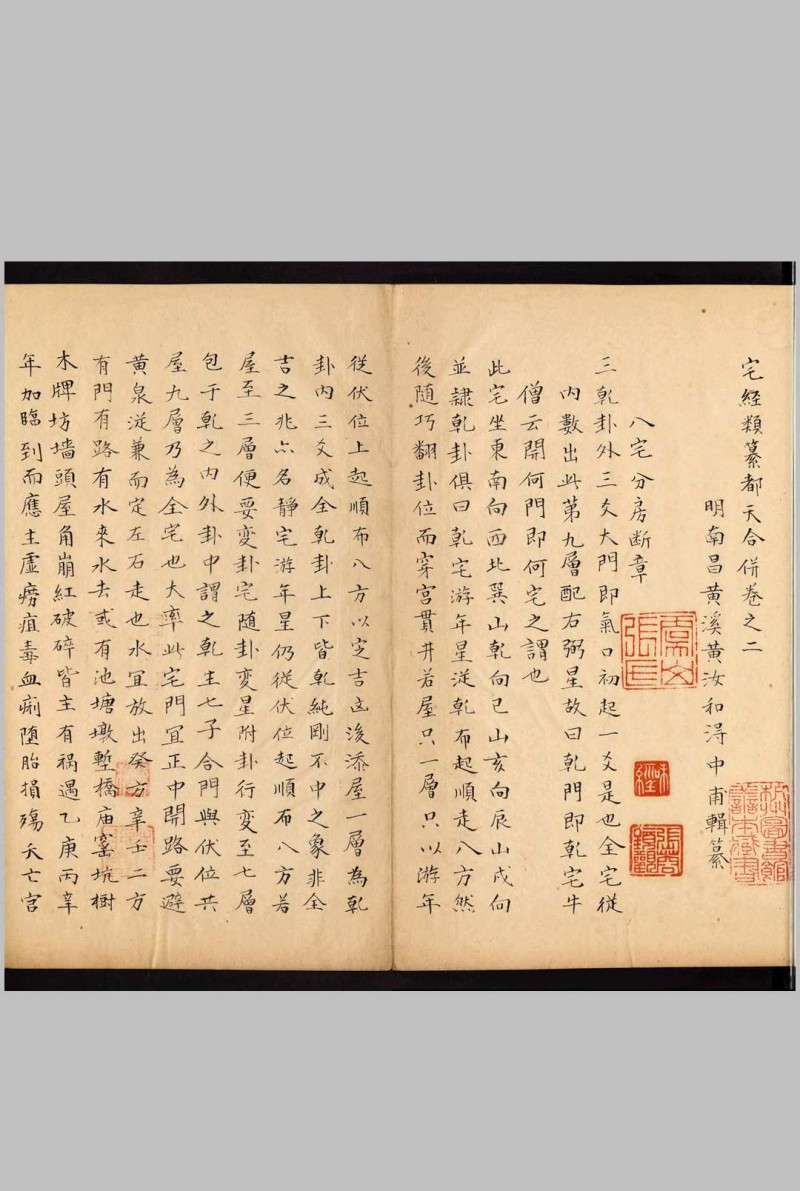 宅經類纂都天合併卷之二
明南昌黃溪黃汝和淂中甫輯纂
八宅分房断章
三乾卦外三爻大門即氣口初起一爻是也全宅從
内數出此第九層配右弼星故曰乾門即乾宅牛
僧云開何門即何宅之謂也
此宅坐東南向西北巽山乾向巳山亥向辰山戌向
並隷乾卦俱曰乾宅游年星從乾布起順走八方然
後随巧翻卦位而穿宫貫井若屋只一層只以游年
從伏位上起順布八方以定吉凶後添屋一層為乾
卦内三爻成全乾卦上下皆乾純剛不中之象非全
吉之兆亦名静宅游年星仍從伏位起順布八方若
屋至三層便要變卦宅随卦变星附卦行变至七層
包于乾之内外卦中謂之乾主七子合門與伏位共
屋九層乃為全宅也大率此宅門宜正中開路要避
黄泉淀兼而定左右走也水宜放出癸方辛壬二方
有門有路有水來水去或有池塘墩塹橋庙窰坑樹
木牌坊墻頭屋角崩紅破碎皆主有禍遇乙庚丙辛
年加臨到而應主虛癆疽毒血痢堕胎損殤夭亡宫